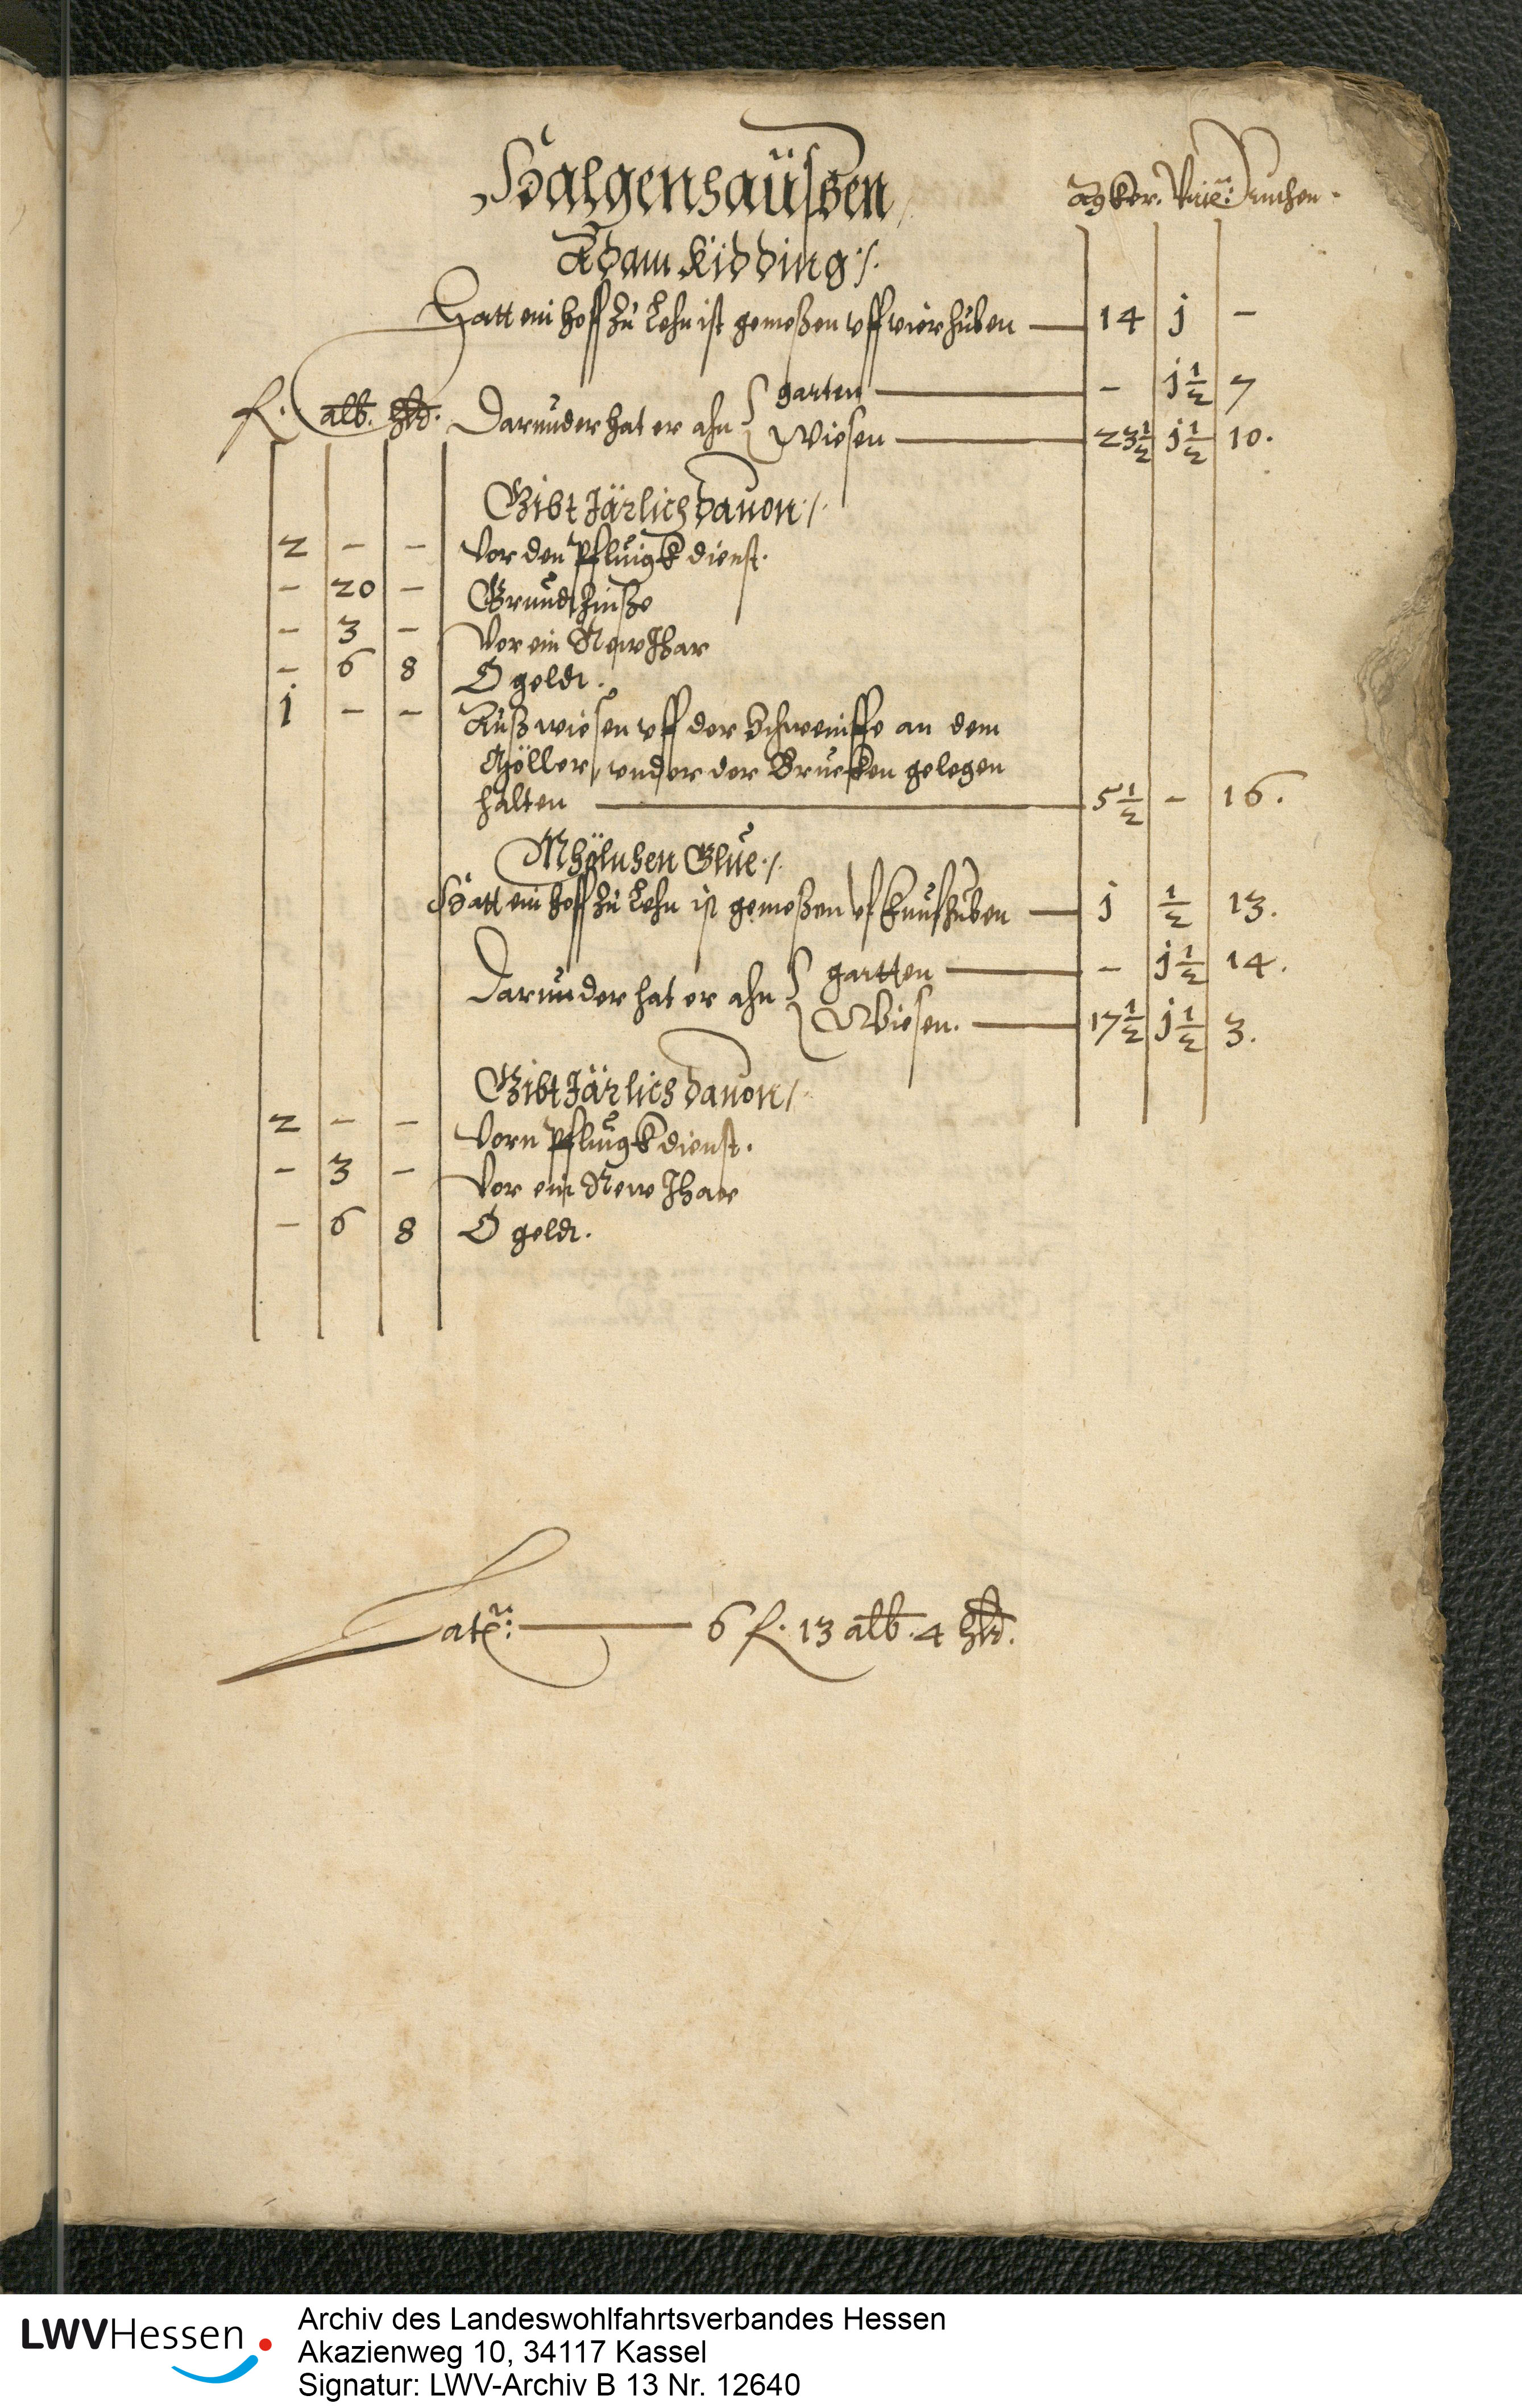 Halgenhaüsßen
Acker. Virtel: Ruthen.
Adam Kidding /.
Hatt ein hoff zu Lehn ist gemeßen vff vier huben — 14 j -
fl. alb. hlr. Darunder hat er ahn garten — - j½ 7
Wiesen — 23½ j½ 10.
Gibt Järlich dauon /.
2 - - Vor den Pfluigk dienst.
- 20 - Grundt Zinße
- 3 - Vor ein New Jhar
- 6 8 O geldt.
j - - Auß wiesen vff der Schweinffe an dem
Möller, vnder der Brucken gelegen
halten — 5½ - 16.
Glue /.
Hatt ein hoff zu Lehn ist gemeßen vf huben — j ½ 13.
Darunder hat er ahn gartten — - j½ 14.
Wiesen. — 17½ j½ 3.
Gibt Järlich dauon /.
2 - - Vorn Pfluigk dienst.
- 3 - Vor ein New Jhar
- 6 8 O geldt.
Latg: — 6 fl. 13 alb. 4 hlr.
LWVHessen
Archiv des Landeswohlfahrtsverbandes Hessen
Akazienweg 10, 34117 Kassel
Signatur: LWV-Archiv B 13 Nr. 12640